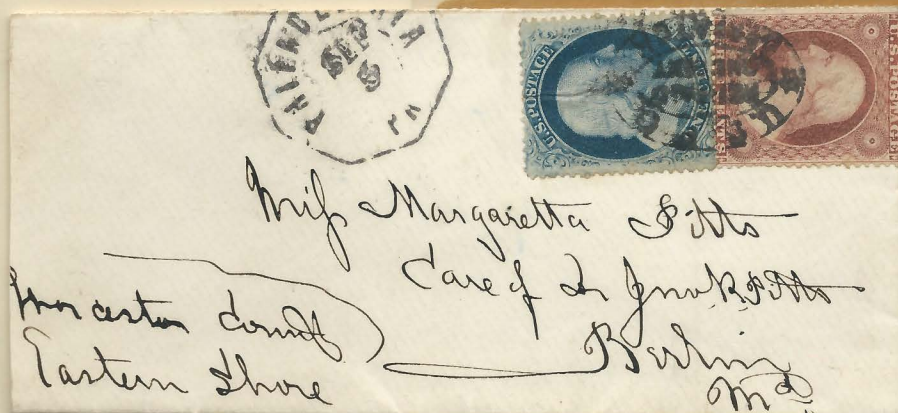 PHILADELPHIA
SEP
5
PA
U.S. POSTAGE
U.S. POSTAGE
Miss Margaretta Pitts
Care of Dr Jno R Pitts
Berlin
Md
Worcester County
Eastern Shore